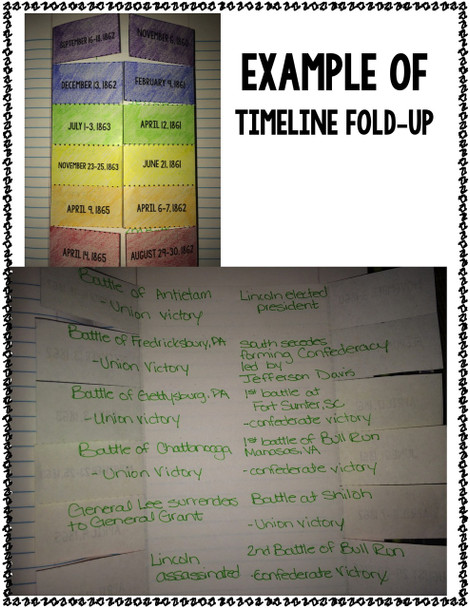 EXAMPLE OF
TIMELINE FOLD-UP
SEPTEMBER 16-18, 1862
NOVEMBER 6, 1860
DECEMBER 13, 1862
FEBRUARY 9, 1861
JULY 1-3, 1863
APRIL 12, 1861
NOVEMBER 23-25, 1863
JUNE 21, 1861
APRIL 9, 1865
APRIL 6-7, 1862
APRIL 14, 1865
AUGUST 29-30, 1862
Battle of Antietam
- Union victory
Battle of Fredricksburg, PA
-Union Victory
Battle of Gettysburg, PA
-Union victory
Battle of Chattanooga
-Union Victory
General Lee surrenders
to General Grant
Lincoln
assassinated
Lincoln elected
president
South secedes
forming Confederacy
led by
Jefferson Davis
1st battle at
Fort Sumter, SC
-confederate victory
1st battle of Bull Run
Manasas, VA
-confederate victory
Battle at Shiloh
-Union victory
2nd Battle of Bull Run
-Confederate Victory